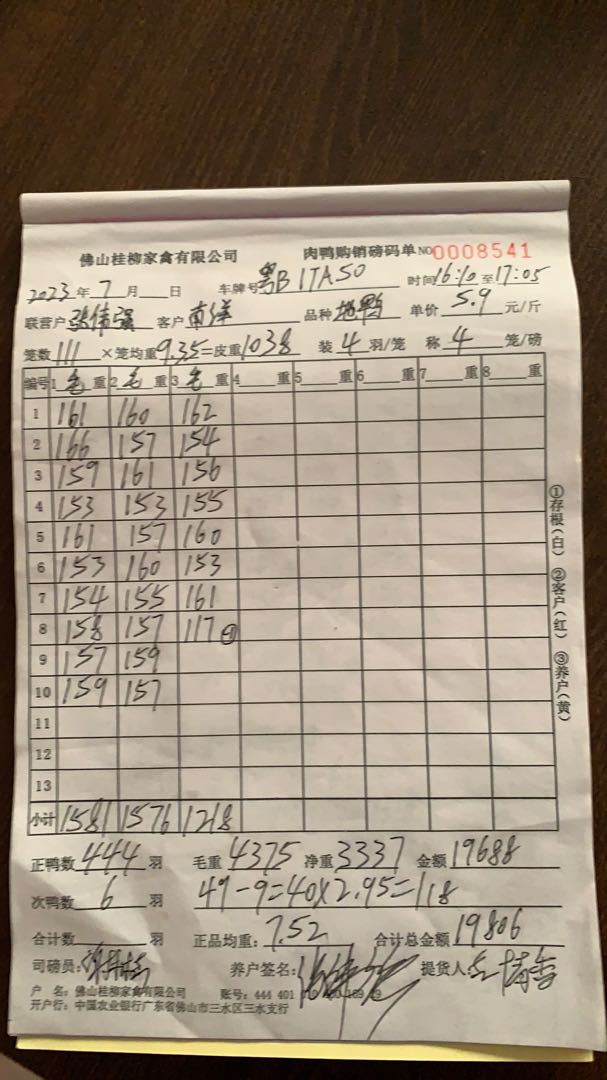 佛山桂柳家禽有限公司 肉鸭购销磅码单 NO 0008541
2023年 7月 日 车牌号 粤B 1TA50 时间 16:10 至 17:05
联营户 张伟强 客户 南洋 品种 单价 5.9 元/斤
笼数 111 ×笼均重 9.35 =皮重 1038 装 4 羽/笼 称 4 笼/磅
编号 1 毛 重 2 毛 重 3 毛 重 4 重 5 重 6 重 7 重 8 重
1 161 160 162
2 166 157 154
3 159 161 156
4 153 153 155
5 161 157 160
6 153 160 153
7 154 155 161
8 158 157 117
9 157 159
10 159 157
11
12
13
小计 1581 1576 1218
①存根(白) ②客户(红) ③养户(黄)
正鸭数 444 羽 毛重 4375 净重 3337 金额 19688
次鸭数 6 羽 49-9=40×2.95=118
合计数 羽 正品均重: 7.52 合计总金额 19806
司磅员: 养户签名: 提货人:
户 名: 佛山桂柳家禽有限公司 账号: 444 401
开户行: 中国农业银行广东省佛山市三水区三水支行